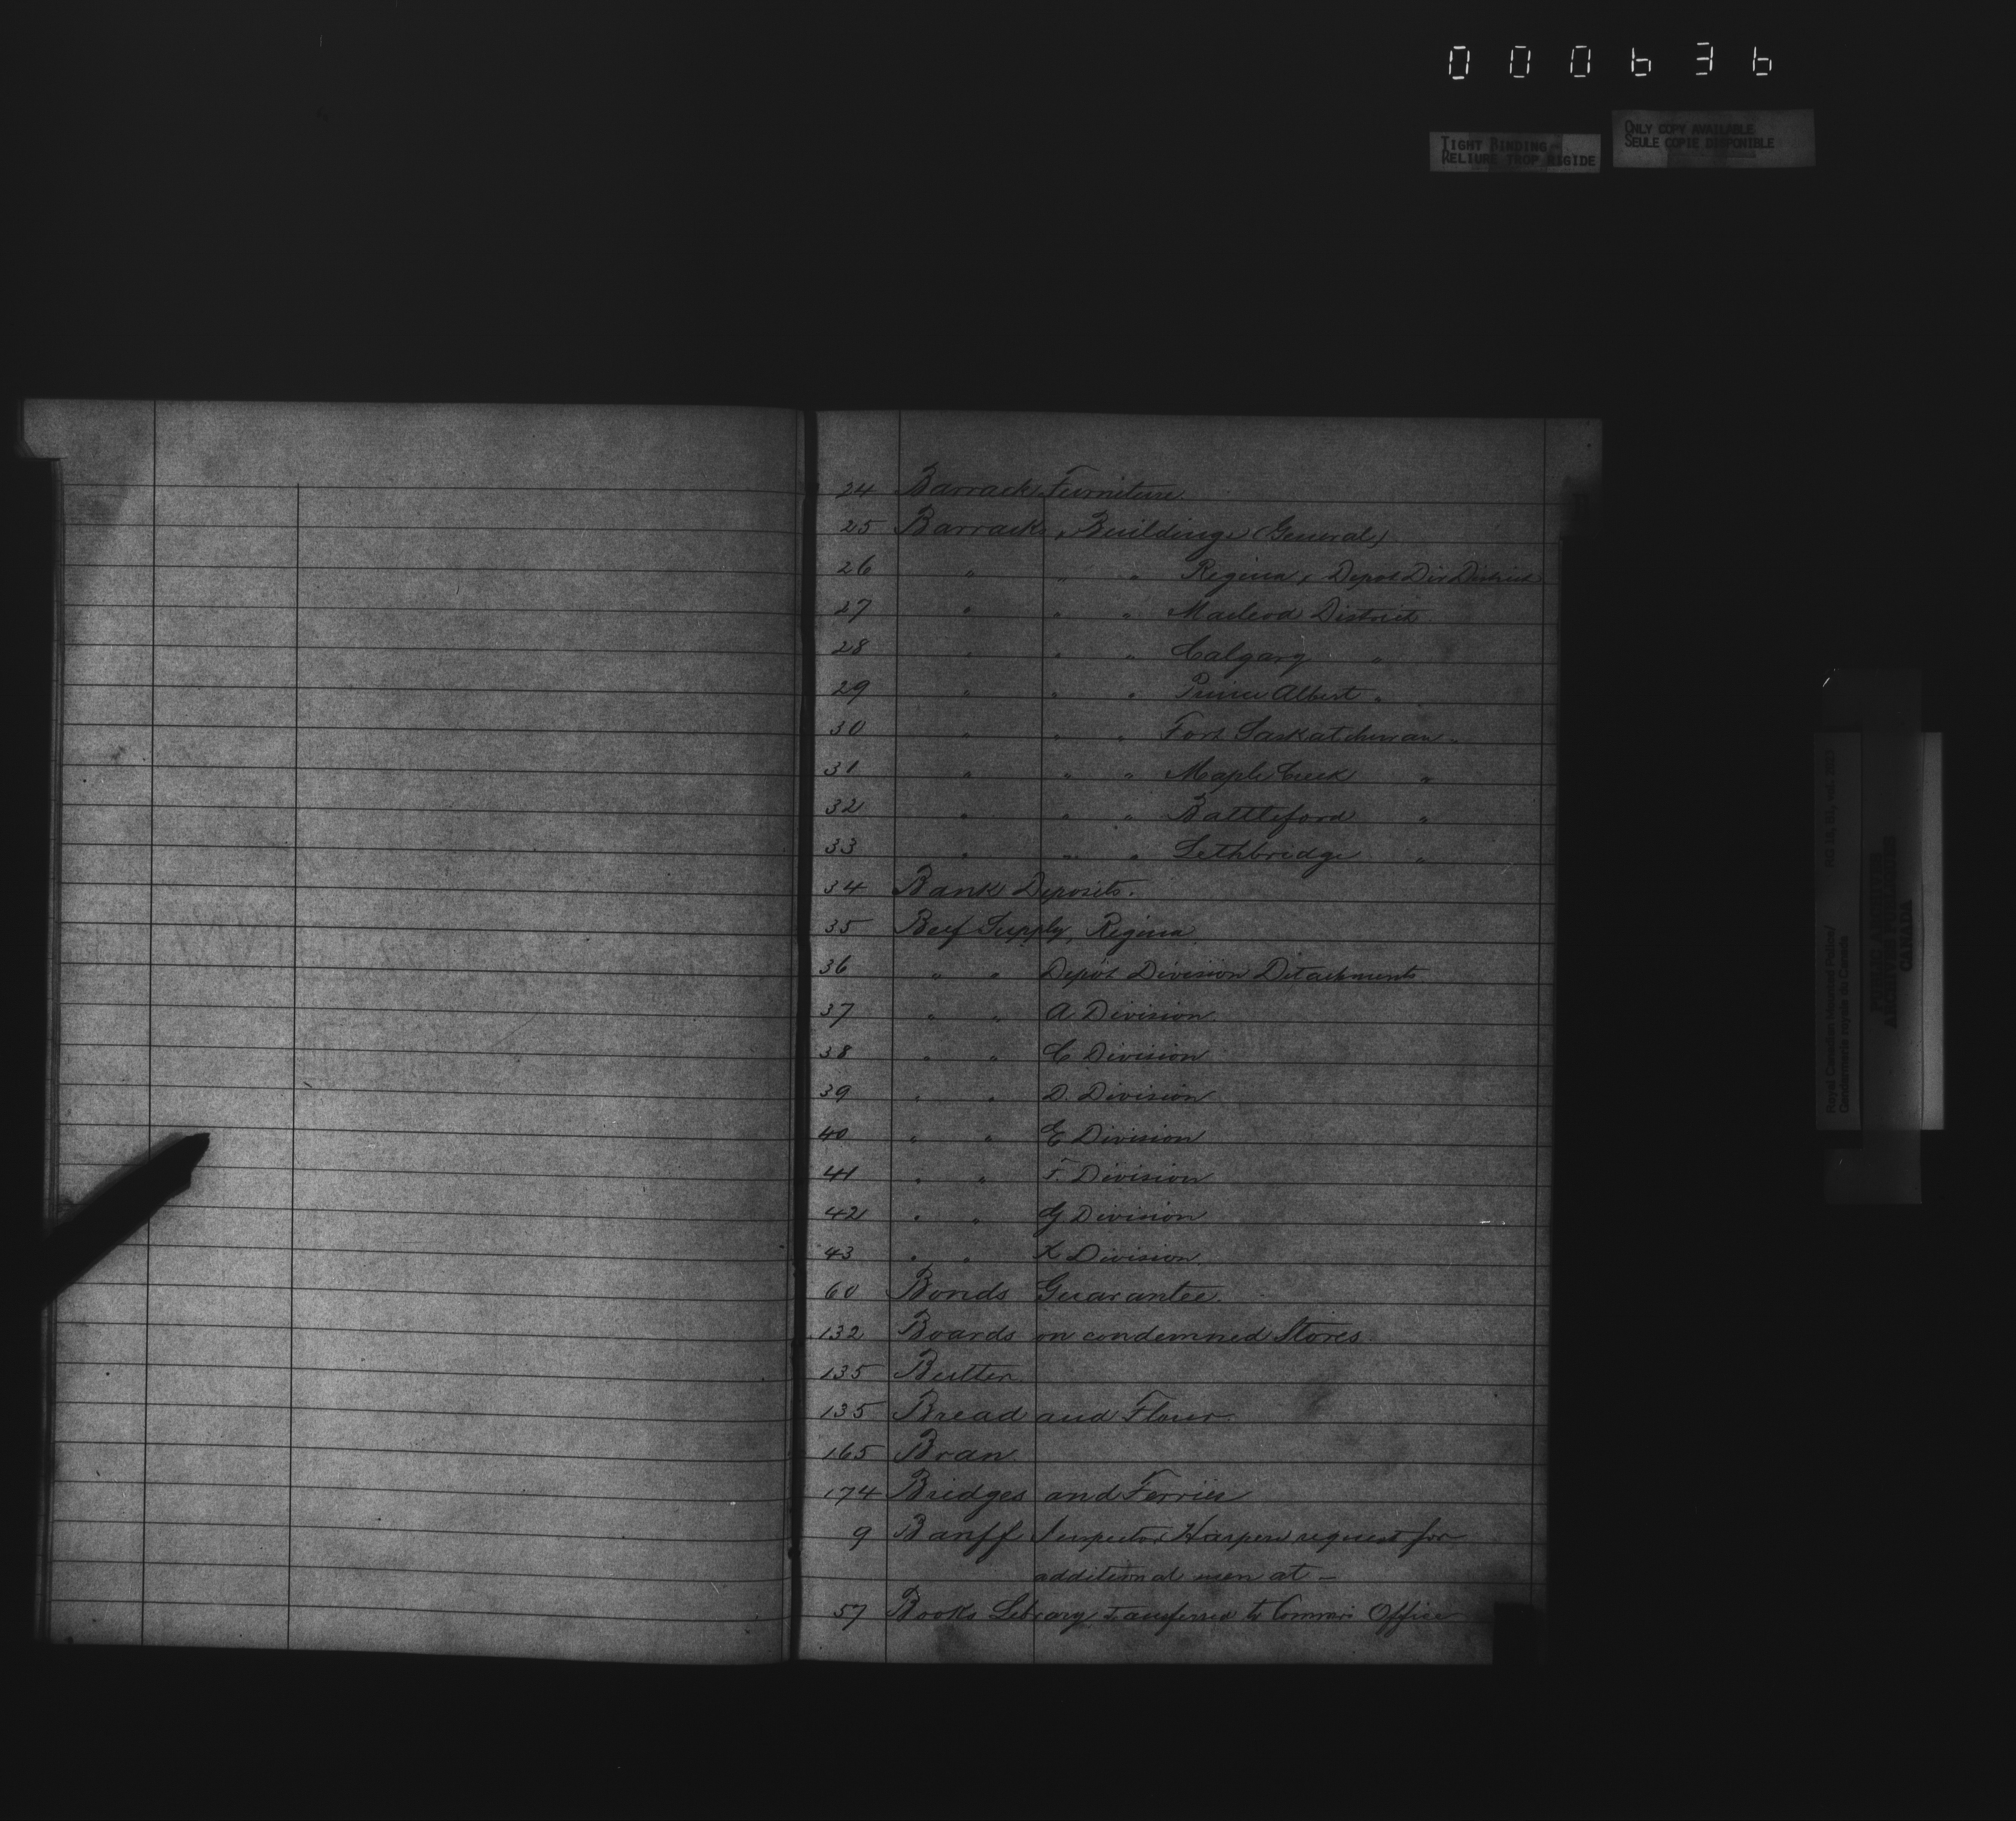 000636
TIGHT BINDING
RELIURE TROP RIGIDE
ONLY COPY AVAILABLE
SEULE COPIE DISPONIBLE
24 Barrack Furniture
25 Barracks & Buildings (General)
26 " " " Regina & Depot Div District
27 " " " Macleod District
28 " " " Calgary "
29 " " " Prince Albert "
30 " " " Fort Saskatchewan "
31 " " " Maple Creek "
32 " " " Battleford "
33 " " " Lethbridge "
34 Bank Deposits.
35 Beef Supply, Regina
36 " " Depot Division Detachments
37 " " A Division
38 " " C Division
39 " " D. Division
40 " " E Division
41 " " F. Division
42 " " G Division
43 " " K Division
60 Bonds Guarantee.
132 Boards on condemned Stores
135 Butter
135 Bread and Flour
165 Bran
174 Bridges and Ferries
9 Banff Inspector Harpers request for
additional men at —
57 Books Library transferred to Commrs Office
Royal Canadian Mounted Police/
Gendarmerie royale du Canada
PUBLIC ARCHIVES
ARCHIVES PUBLIQUES
CANADA